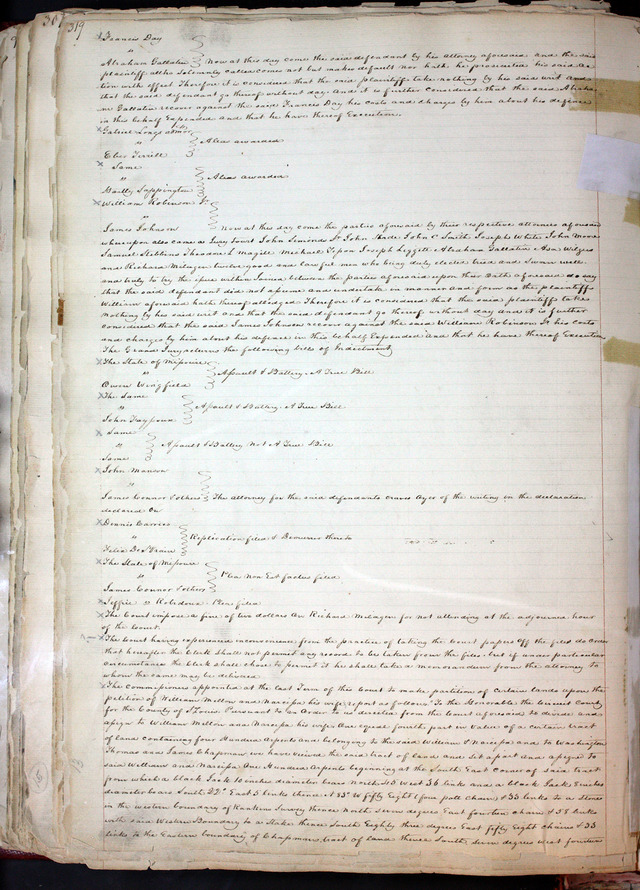 319
Francis Day
"
Abraham Gallatin Now at this day comes the said defendant by his attorney aforesaid and the said
plaintiff altho Solemnly called comes not but makes default nor hath he prosecuted his said Ac
tion with effect Therefore it is considered that the said plaintiff take nothing by his said writ and
that the said defendant go thereof without day. And it is further considered that the said Abraha
m Gallatin recover against the said Francis Day his costs and charges by him about his defence
in this behalf Expended and that he have thereof Execution.
Gabriel Longs admor
" Alias awarded
Elies Terrill
Same
" Alias awarded
Hartly Sappington
William Robinson Jr.
"
James Johnson Now at this day come the parties aforesaid by their respective attornies aforesaid
whereupon also came a Jury towit John Simonds Jr John Shade John C Smith Joseph White John Moore
Samuel Stebbins Theodore Magill Michael Joseph Leggett Abraham Gallatin Asa Wilgus
and Richard Milagen twelve good and lawful men who being duly elected tried and Sworn well
and truly to try the issue within Joined between the parties aforesaid upon their Oath aforesaid do say
that the said defendant did not assume and undertake in manner and form as the plaintiff
William aforesaid hath thereof alledged Therefore it is considered that the said plaintiff take
nothing by his said writ and that the said defendant go thereof without day and it is further
considered that the said James Johnson recover against the said William Robinson Jr his costs
and charges by him about his defence in this behalf Expended And that he have thereof Execution
The Grand Jury returns the following bills of Indictment
The State of Missouri
" Assault & Battery. A True Bill
Owen Wingfield
The Same
" Assault & Battery. A True Bill
John
Same
" Assault & Battery Not A True Bill
Same
John Manson
"
James Connor & others The attorney for the said defendants craves Oyer of the writing in the declaration
declared on
Dennis
" Replication filed & Demurrer thereto
Felix
The State of Missouri
" Plea Non Est factum filed
James Connor & others
Jeffrie " Robidoux Plea filed
The Court impose a fine of two dollars on Richard Milagen for not attending at the adjourned hour
of the Court
The Court having experienced inconvenience from the practice of taking the Court papers Off the files do Order
that hereafter the Clerk shall not permit any record to be taken from the files. but if under particular
circumstances the Clerk shall chose to permit it he shall take a memorandum from the attorney to
whom the same may be delivered
The Commissioners appointed at the last Term of this Court to make partition of Certain lands upon the
petition of William Millow and Narcissa his wife, report as follows "To the Honorable the Circuit Court
for the County of St Louis Pursuant to an Order to us directed from the Court aforesaid to divide and
assign to William Millow and Narcissa his wife One equal fourth part in Value of a certain tract
of land containing four Hundred Arpents and belonging to the said William & Narcissa and to Washington
Thomas and James Chapman we have viewed the said tract of land and set apart and assigned to
said William and Narcissa One Hundred Arpents beginning at the South East Corner of said tract
from which a black Jack 10 inches diameter bears north 48 west 36 links and a black Jack 8 inches
diameter bears South 22° East 5 links thence N 83° W fifty Eight (four pole chains) & 33 links to a Stone
in the western boundary of Rankins Survey thence North seven degrees East fourteen chains & 58 links
with said Western Boundary to a Stake thence South Eighty three degrees East fifty Eight chains & 33
links to the Eastern boundary of Chapmans tract of land thence South seven degrees West fourteen